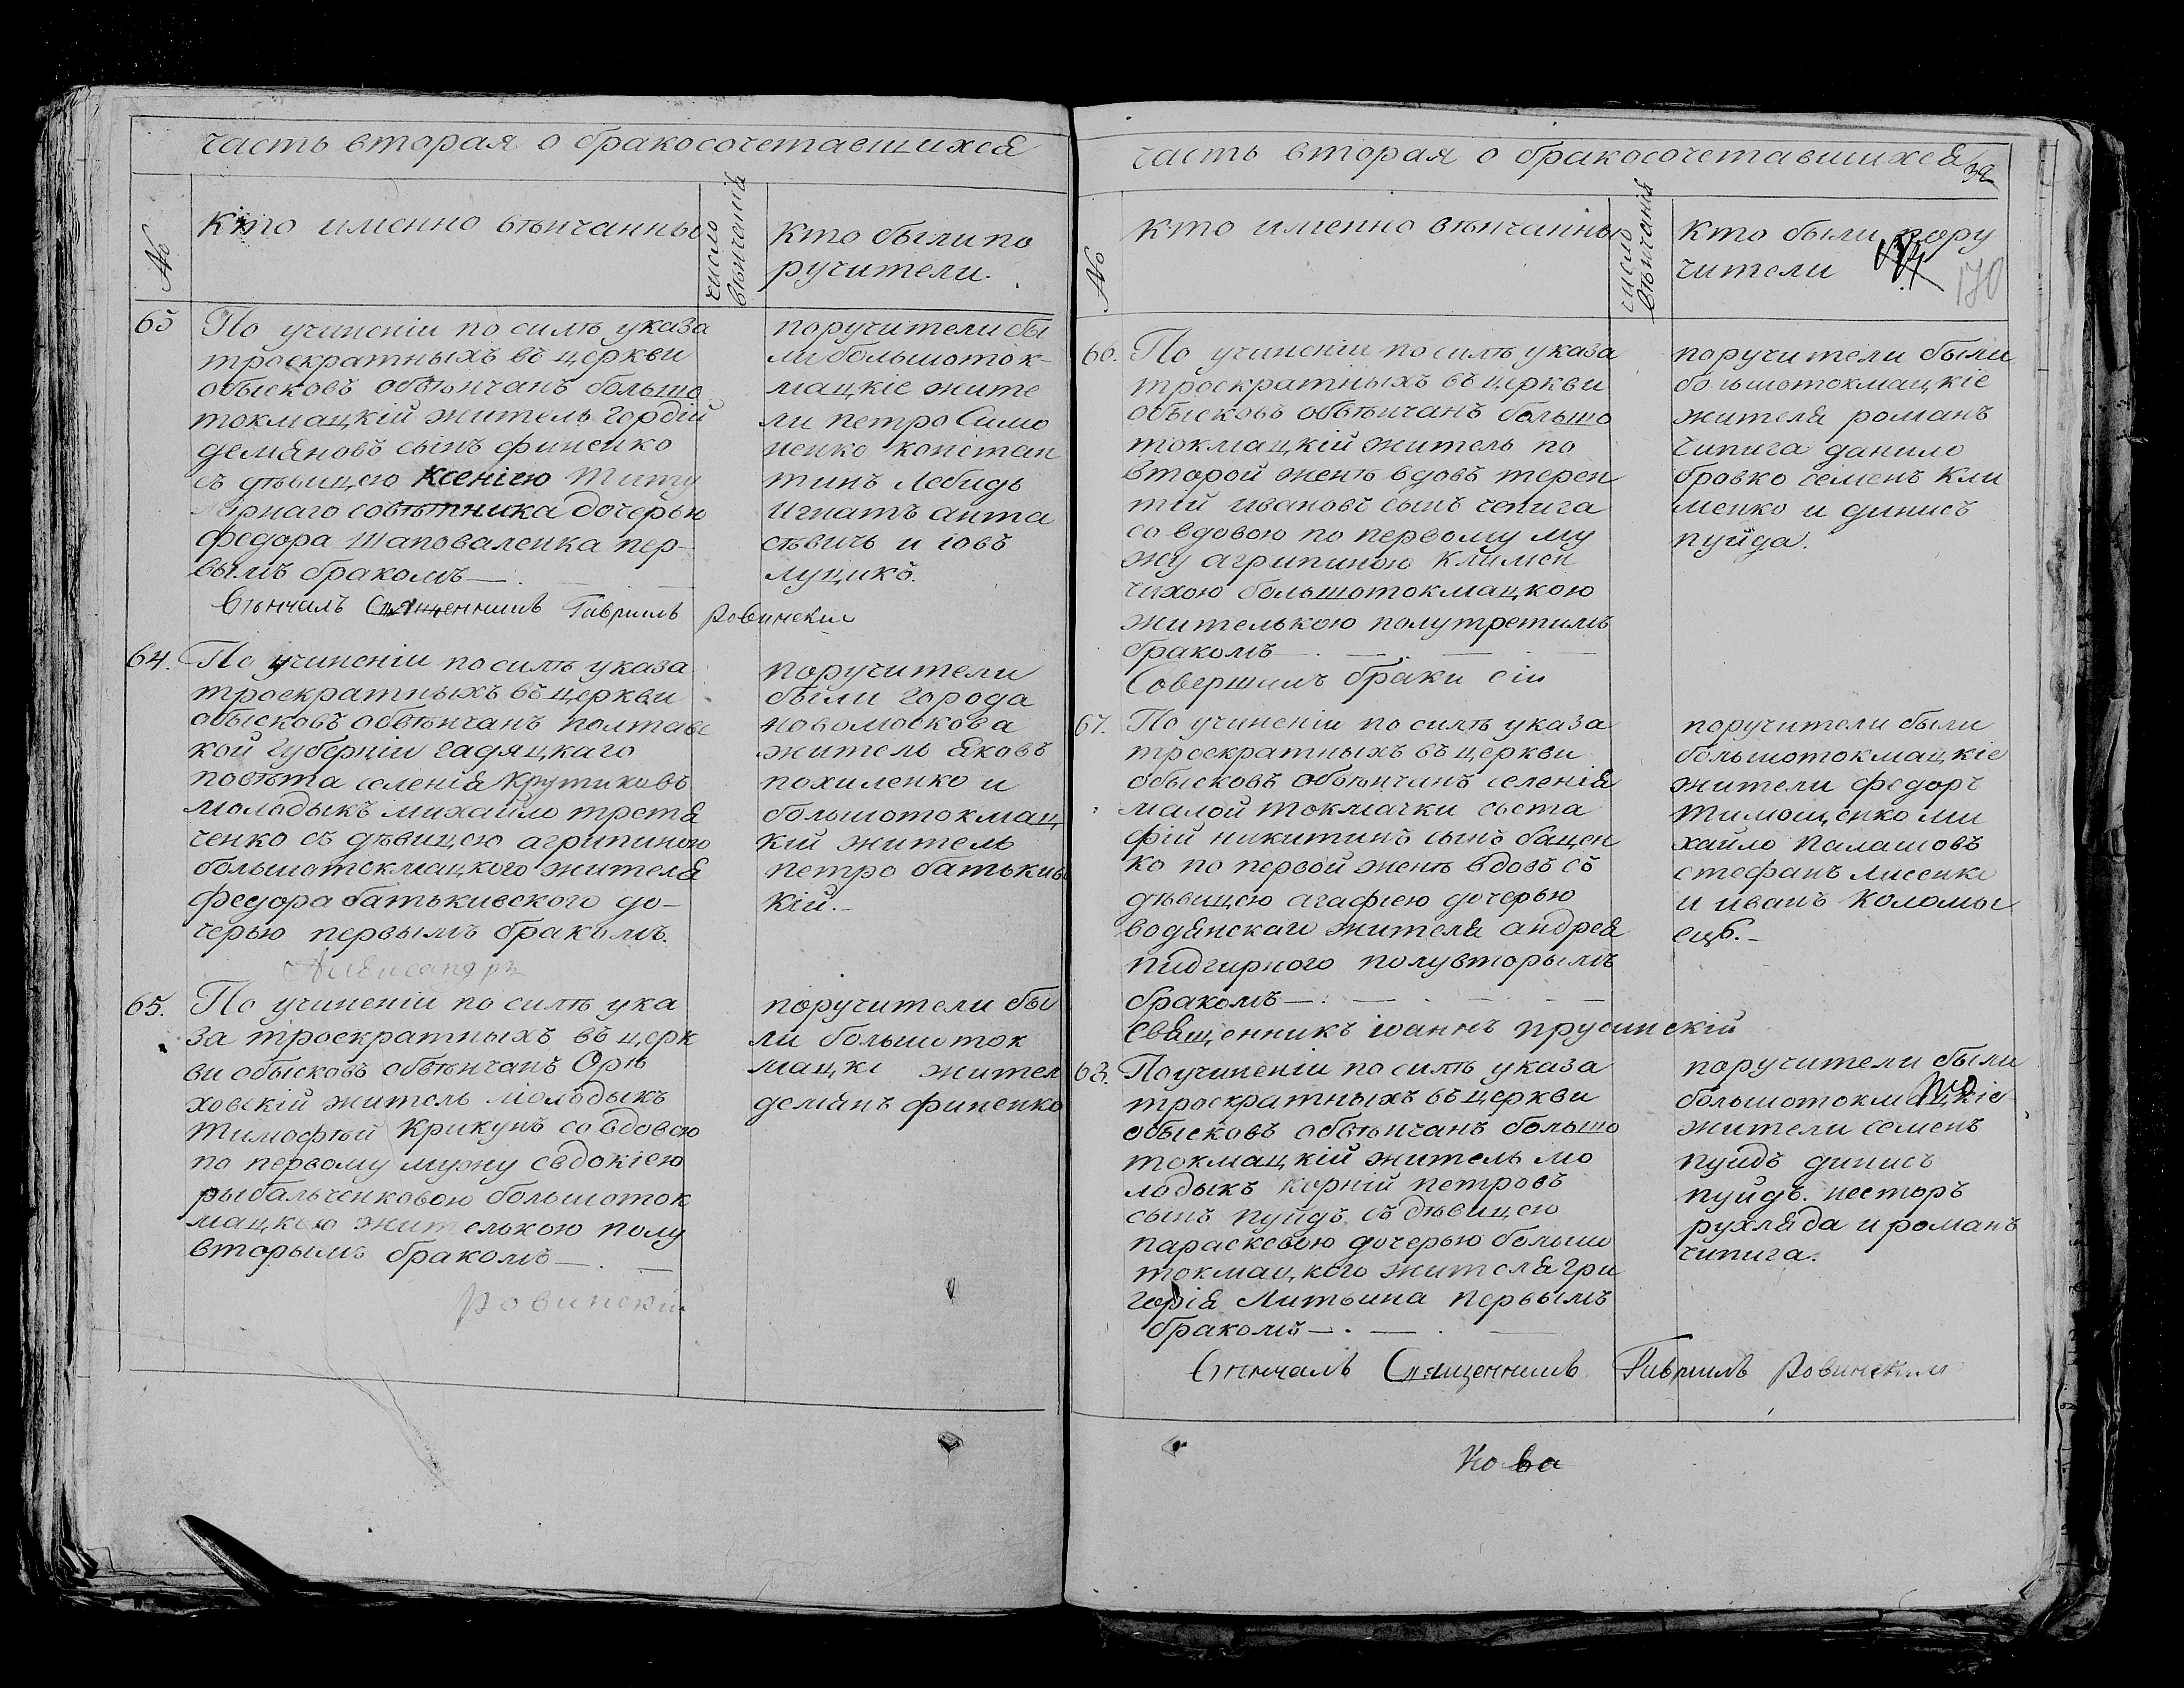 часть вторая о бракосочетавшихся
№
кто именно вѣнчанны
число вѣнчанія
кто были по
ручители.
63
По учиненіи по силѣ указа
троекратныхъ въ церкви
обысковъ обвѣнчанъ большо
токмацкій житель Гордій
демяновъ сынъ финенко
съ дѣвицею Ксеніею титу
лярнаго совѣтника дочерью
федора шаповаленка пер-
вымъ бракомъ
поручители бы
ли большоток-
мацкіе жите
ли петро Симо
ненко констан
тинъ Лебидь
Игнатъ анта
севичь и іовъ
луцикъ.
Вѣнчалъ Священникъ Гавріилъ Ровинскій
64.
По учиненіи по силѣ указа
троекратныхъ въ церкви
обысковъ обвѣнчанъ полтавс
кой Губерніи гадяцкаго
повѣта селенія Крутиковъ
молодыкъ михайло третя
ченко съ дѣвицею агрипиною
большотокмацкого жителя
федора батькивского до-
черью первымъ бракомъ.
поручители
были города
новомоскова
житель яковъ
похиленко и
большотокмац
кій житель
петро батькив
кій.-
Александръ
65.
По учиненіи по силѣ ука
за троекратныхъ въ церк
ви обысковъ обвѣнчанъ Орѣ
ховскій житель молодыкъ
тимофѣй Крикунъ со вдовою
по первому мужу евдокіею
рыбальченковою большоток
мацкою жителькою полу
вторымъ бракомъ
поручители бы
ли большоток
мацкі жител
демянъ финенко
Ровинскій
часть вторая о бракосочетавшихся
39
№
кто именно вѣнчанны
число вѣнчанія
кто были пору
чители
170
66.
По учиненіи по силѣ указа
троекратныхъ въ церкви
обысковъ обвѣнчанъ большо
токмацкій житель по
второй женѣ вдовъ терен
тій ивановъ сынъ чепига
со вдовою по первому му
жу агрипиною климен
чихою большотокмацкою
жителькою полутретимъ
бракомъ
поручители были
большотокмацкіе
жителя романъ
чипига данило
бровко семенъ Кли
менко и динисъ
пуйда.
Совершилъ браки сіи
67.
По учиненіи по силѣ указа
троекратныхъ въ церкви
обысковъ обвѣнчанъ селенія
малой токмачки евста
фій никитинъ сынъ бацен
ко по первой женѣ вдовъ съ
дѣвицею агафіею дочерью
водянскаго жителя андрея
пидгирного полувторымъ
бракомъ
поручители были
большотокмацкіе
жители федоръ
тимошенко ми
хайло палашовъ
стефанъ лисенко
и иванъ коломы
ецъ.-
Священникъ іоаннъ прусинскій
68.
По учиненіи по силѣ указа
троекратныхъ въ церкви
обысковъ обвѣнчанъ большо
токмацкій житель мо
лодыкъ корній петровъ
сынъ пуйдъ съ дѣвицею
параскевою дочерью большо
токмацкого жителя Гри
Горія Литвина первымъ
бракомъ
поручители были
большотокмацкіе
жители семенъ
пуйдъ динисъ
пуйдъ. несторъ
рухляда и романъ
чипига.
Вѣнчалъ Священникъ Гавріилъ Ровинскій
Кова